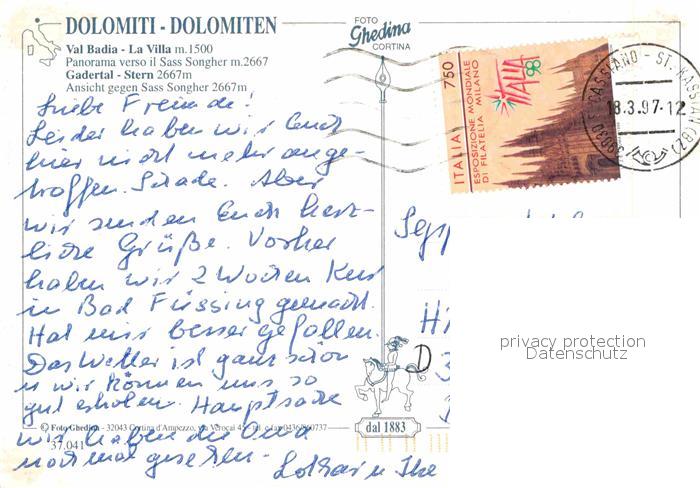 DOLOMITI - DOLOMITEN
Val Badia - La Villa m.1500
Panorama verso il Sass Songher m.2667
Gadertal - Stern 2667m
Ansicht gegen Sass Songher 2667m
FOTO
Ghedina
CORTINA
750
ITALIA
ESPOSIZIONE MONDIALE
DI FILATELIA MILANO
ITALIA 98
39030 S. CASSIANO - ST. KASSIAN (BZ)
18.3.97-12
Liebe Freunde!
Leider haben wir Euch
hier nicht mehr ange-
troffen. Schade. Aber
wir senden Euch herz-
liche Grüße. Vorher
haben wir 2 Wochen Kur
in Bad Füssing gemacht.
Hat uns besser gefallen.
Das Wetter ist ganz schön
u wir können uns so
gut erholen. Hauptsache
wir haben die
noch mal gesehen.
Lothar u
D
privacy protection
Datenschutz
© Foto Ghedina - 32043 Cortina d'Ampezzo, via Verocai
37.041
dal 1883